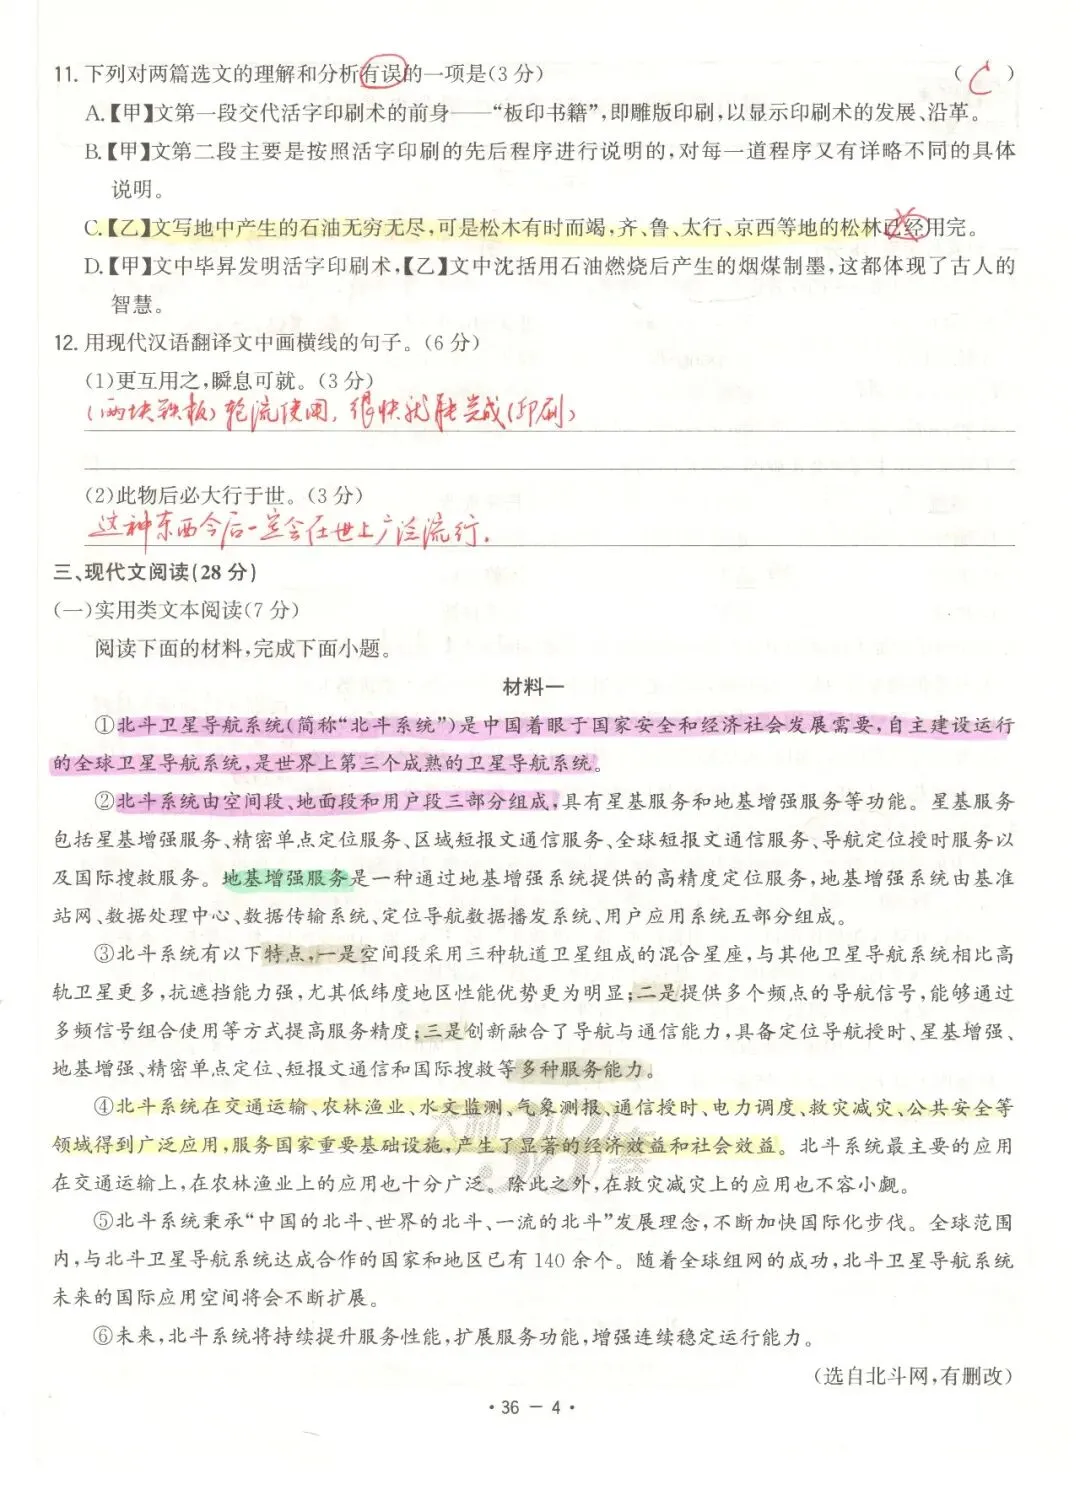 11. 下列对两篇选文的理解和分析有误的一项是(3分) ( C )
A.【甲】文第一段交代活字印刷术的前身——“板印书籍”,即雕版印刷,以显示印刷术的发展、沿革。
B.【甲】文第二段主要是按照活字印刷的先后程序进行说明的,对每一道程序又有详略不同的具体
说明。
C.【乙】文写地中产生的石油无穷无尽,可是松木有时而竭,齐、鲁、太行、京西等地的松林已经用完。
D.【甲】文中毕昇发明活字印刷术,【乙】文中沈括用石油燃烧后产生的烟煤制墨,这都体现了古人的
智慧。
12. 用现代汉语翻译文中画横线的句子。(6分)
(1)更互用之,瞬息可就。(3分)
(两块铁板)轮流使用,很快就能完成(印刷)
(2)此物后必大行于世。(3分)
这种东西今后一定会在世上广泛流行.
三、现代文阅读(28分)
(一)实用类文本阅读(7分)
阅读下面的材料,完成下面小题。
材料一
①北斗卫星导航系统(简称“北斗系统”)是中国着眼于国家安全和经济社会发展需要,自主建设运行
的全球卫星导航系统,是世界上第三个成熟的卫星导航系统。
②北斗系统由空间段、地面段和用户段三部分组成,具有星基服务和地基增强服务等功能。星基服务
包括星基增强服务、精密单点定位服务、区域短报文通信服务、全球短报文通信服务、导航定位授时服务以
及国际搜救服务。地基增强服务是一种通过地基增强系统提供的高精度定位服务,地基增强系统由基准
站网、数据处理中心、数据传输系统、定位导航数据播发系统、用户应用系统五部分组成。
③北斗系统有以下特点,一是空间段采用三种轨道卫星组成的混合星座,与其他卫星导航系统相比高
轨卫星更多,抗遮挡能力强,尤其低纬度地区性能优势更为明显;二是提供多个频点的导航信号,能够通过
多频信号组合使用等方式提高服务精度;三是创新融合了导航与通信能力,具备定位导航授时、星基增强、
地基增强、精密单点定位、短报文通信和国际搜救等多种服务能力。
④北斗系统在交通运输、农林渔业、水文监测、气象测报、通信授时、电力调度、救灾减灾、公共安全等
领域得到广泛应用,服务国家重要基础设施,产生了显著的经济效益和社会效益。北斗系统最主要的应用
在交通运输上,在农林渔业上的应用也十分广泛。除此之外,在救灾减灾上的应用也不容小觑。
⑤北斗系统秉承“中国的北斗、世界的北斗、一流的北斗”发展理念,不断加快国际化步伐。全球范围
内,与北斗卫星导航系统达成合作的国家和地区已有140余个。随着全球组网的成功,北斗卫星导航系统
未来的国际应用空间将会不断扩展。
⑥未来,北斗系统将持续提升服务性能,扩展服务功能,增强连续稳定运行能力。
(选自北斗网,有删改)
·36－4·